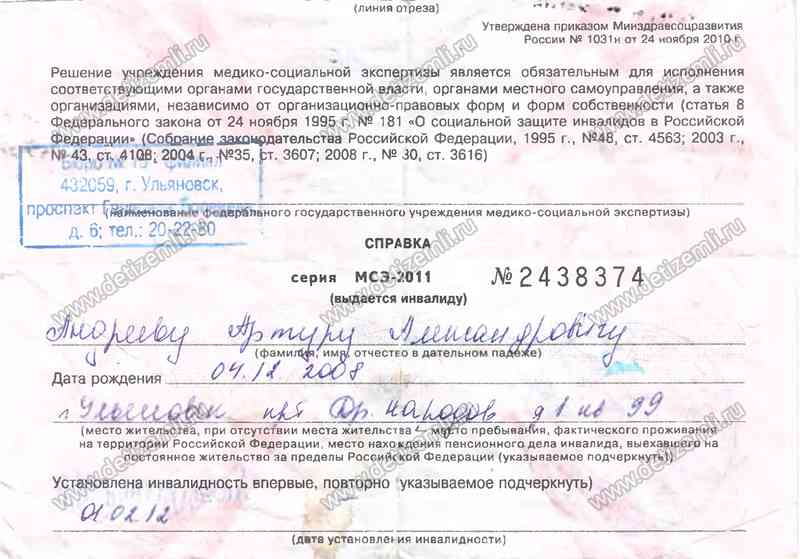 (линия отреза)
Утверждена приказом Минздравсоцразвития
России № 1031н от 24 ноября 2010 г.
Решение учреждения медико-социальной экспертизы является обязательным для исполнения
соответствующими органами государственной власти, органами местного самоуправления, а также
организациями, независимо от организационно-правовых форм и форм собственности (статья 8
Федерального закона от 24 ноября 1995 г. № 181 «О социальной защите инвалидов в Российской
Федерации» (Собрание законодательства Российской Федерации, 1995 г., №48, ст. 4563; 2003 г.,
№ 43, ст. 4108; 2004 г., №35, ст. 3607; 2008 г., № 30, ст. 3616)
432059, г. Ульяновск,
проспект
д. 6; тел.: 20-22-80
(наименование федерального государственного учреждения медико-социальной экспертизы)
СПРАВКА
серия МСЭ-2011 № 2438374
(выдается инвалиду)
Андрееву Артуру Александровичу
(фамилия, имя, отчество в дательном падеже)
Дата рождения 04.12.2008
г. Ульяновск пкт Др. народов д 1 кв 99
(место жительства, при отсутствии места жительства - место пребывания, фактического проживания
на территории Российской Федерации, место нахождения пенсионного дела инвалида, выехавшего на
постоянное жительство за пределы Российской Федерации (указываемое подчеркнуть))
Установлена инвалидность впервые, повторно (указываемое подчеркнуть)
010212
(дата установления инвалидности)
www.detizemli.ru